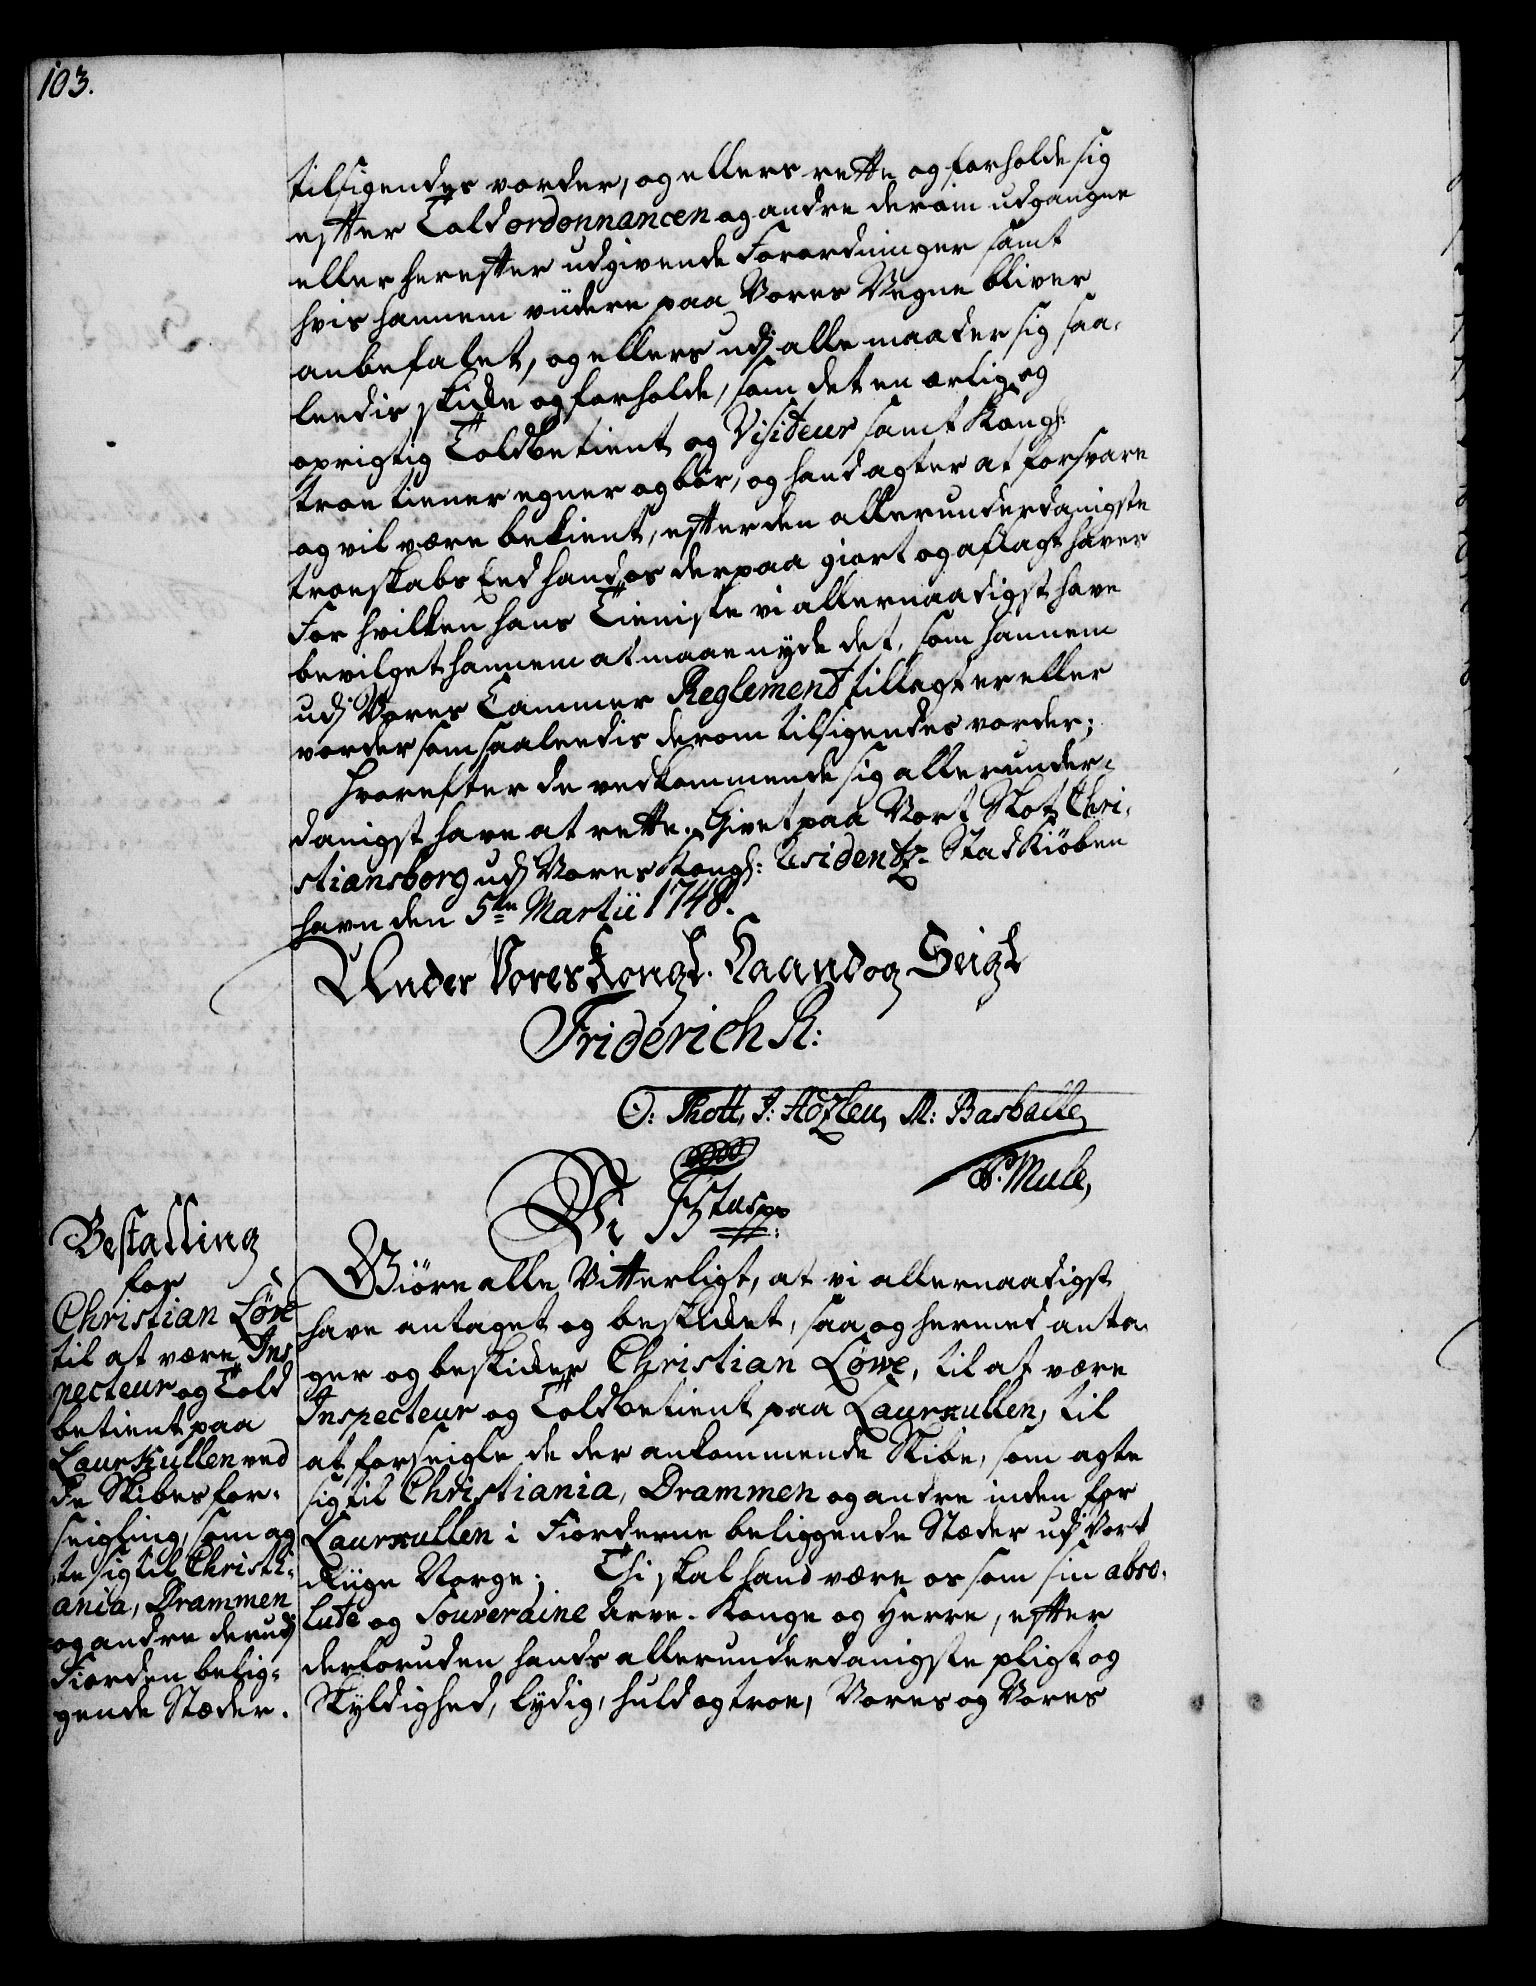 103.
tilsigendes vorder, og ellers rette og forholde sig
efter Told ordonnancen og andre derom udgangne
eller herefter udgivende Forordninger samt
hvis hannem viidere paa Vores Vegne bliver
anbefalet, og ellers udj alle maader sig saa-
leedis skikke og forholde, som det en ærlig og
oprigtig Toldbetient og Visiteur samt Kongl:
troe tiener egner og bør, og hand agter at forsvare
og vil være bekient, efter den allerunderdanigste
troeskabs Eed hand os derpaa giort og aflagt haver
For hvilken hans Tieniste vi allernaadigst have
bevilget hannem at maae nyde det, som hannem
udj Vores Cammer Reglement tillagt er eller
vorder som saaleedis derom tilsigendes vorder;
Hvorefter de vedkommende sig allerunder-
danigst have at rette. Givet paa Vort Slot Chri-
stiansborg udj Vores Kongl: Residentz-Stad Kiöben
havn den 5te Martii 1748.
Under Vores Kongl. Haand og Seigl
Friderich R:
O: Thott, J: Hozleu, M: Barbatte,
P. Mule,
Vi F 5tus pp
Bestalling
for
Christian Löwe
til at være Ins
pecteur og Told
betient paa
Laurkullen ved
de Skibes for-
seigling, som ag
te sig til Christi-
ania, Drammen
og andre derudj
Fiorden belig-
gende Stæder.
Giöre alle Vitterligt, at vi allernaadigst
have antaget og beskikket, saa og hermed anta-
ger og beskikker Christian Löwe, til at være
Inspecteur og Toldbetient paa Laurkullen, til
at forseigle de der ankommende Skibe, som agte
sig til Christiania, Drammen og andre inden for
Laurkullen i Fiorderne beliggende Stæder udj Vort
Riige Norge; Thi skal hand være os som sin abso-
lute og Souveraine Arve-Konge og Herre, efter
derforuden hands allerunderdanigste pligt og
Skyldighed, lydig, huld og troe, Vores og Vores